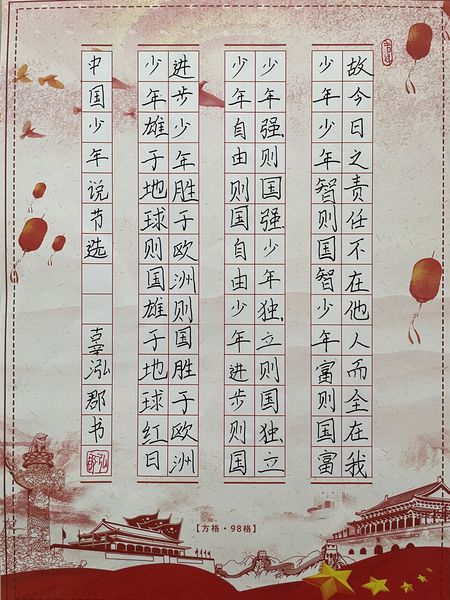 故今日之责任不在他人而全在我
少年少年智则国智少年富则国富
少年强则国强少年独立则国独立
少年自由则国自由少年进步则国
进步少年胜于欧洲则国胜于欧洲
少年雄于地球则国雄于地球红日
中国少年说节选 辜泓郡书
【方格·98格】